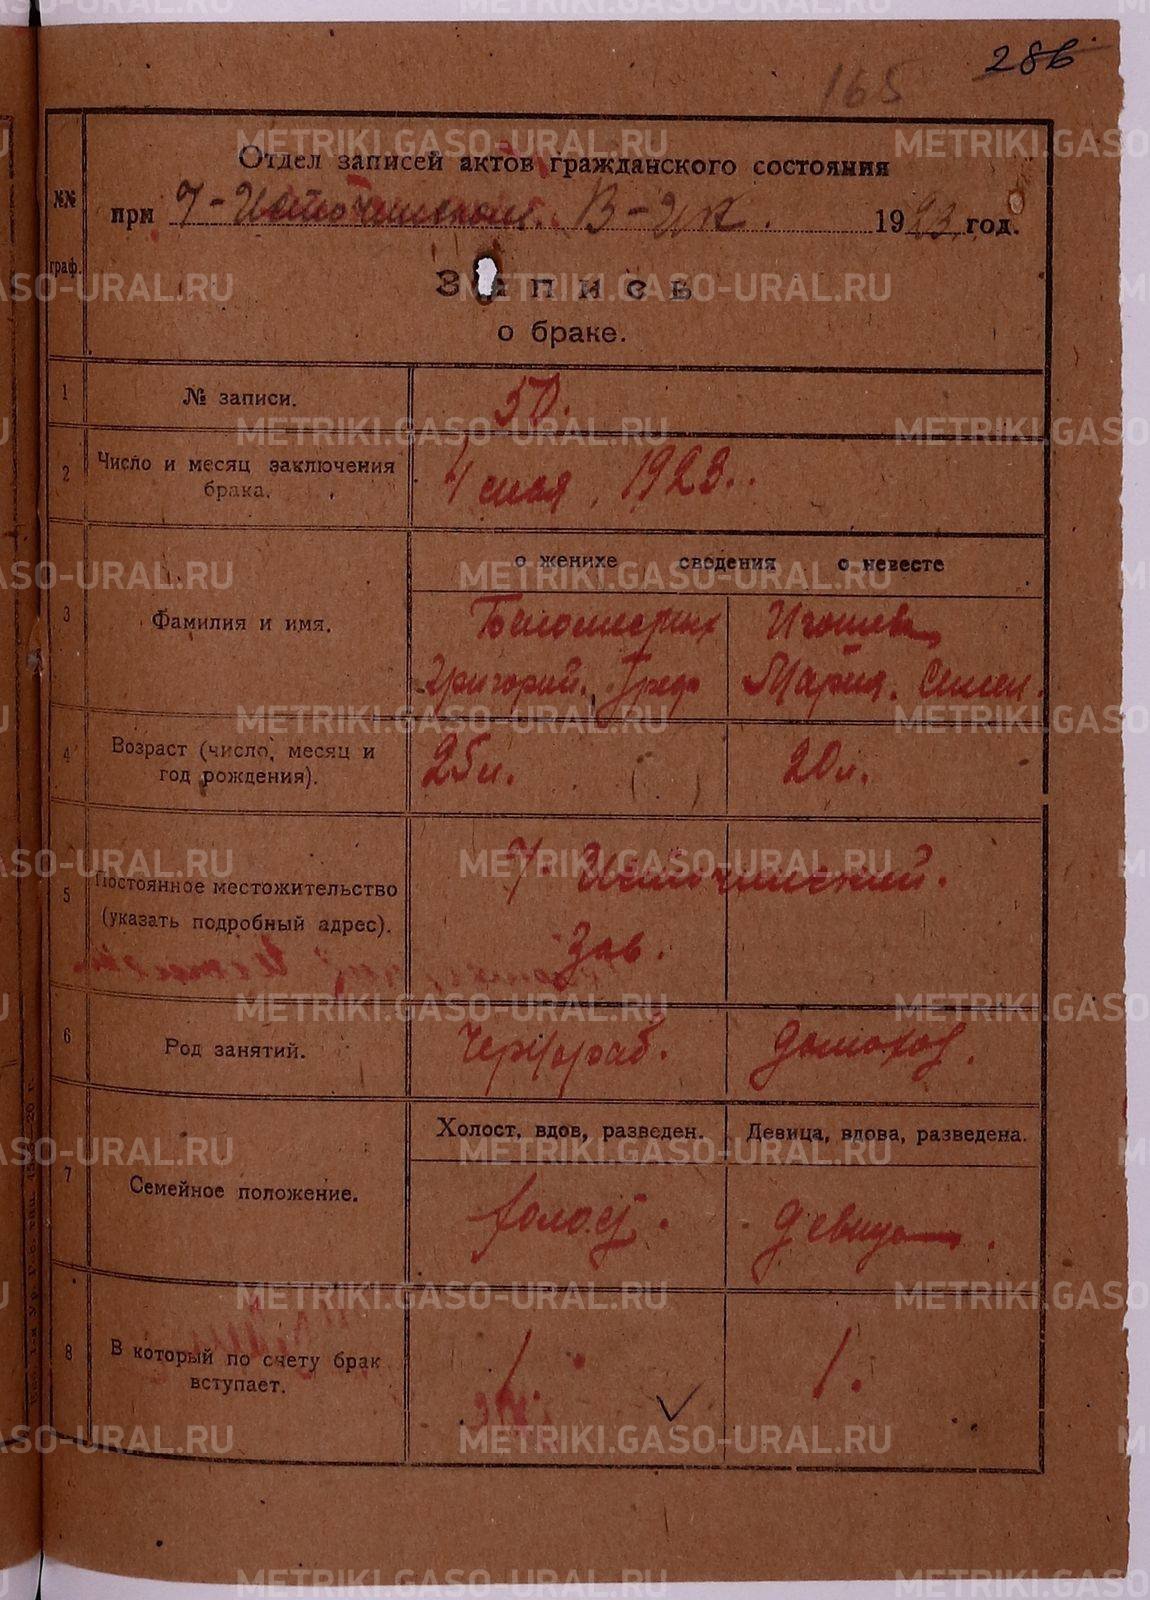 286
165
Отдел записей актов гражданского состояния
№№ граф.
при В-Ик. 1923 год.
Запись
о браке.
1 № записи. 50.
2 Число и месяц заключения
брака. 4 мая 1923.
о женихе сведения о невесте
3 Фамилия и имя.
Григорий. Мария. Семен.
4 Возраст (число, месяц и
год рождения). 25 л. 20 л.
5 Постоянное местожительство
(указать подробный адрес).
Зав.
6 Род занятий. Чернораб. домохоз.
Холост, вдов, разведен. Девица, вдова, разведена.
7 Семейное положение. холост. девица.
8 В который по счету брак
вступает. 1. 1.
METRIKI.GASO-URAL.RU